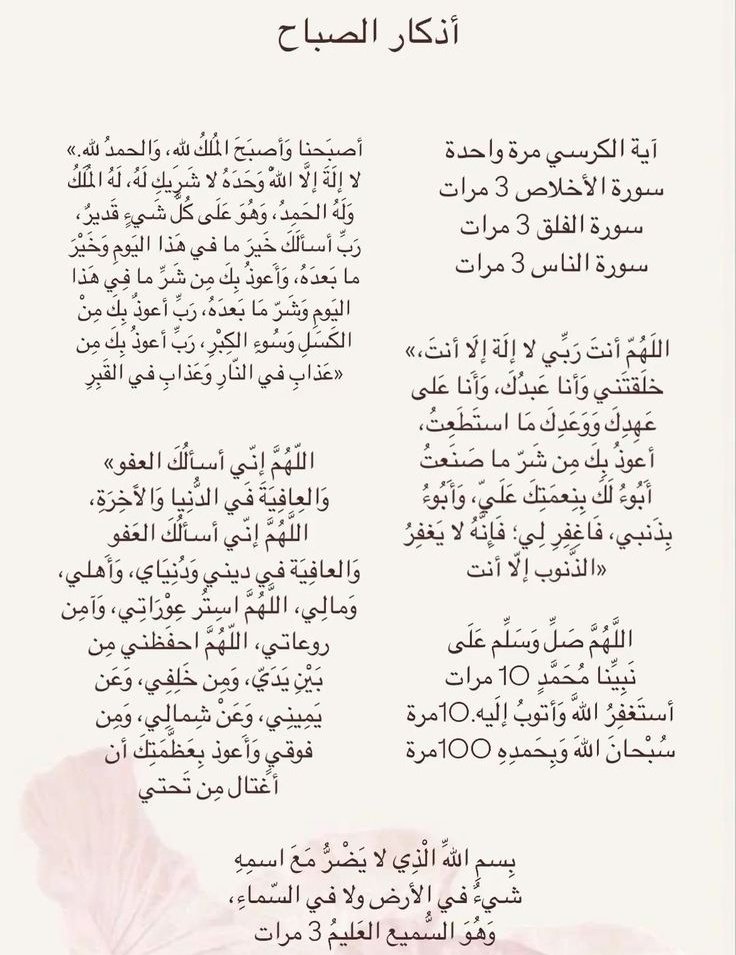 أذكار الصباح
آية الكرسي مرة واحدة
سورة الأخلاص 3 مرات
سورة الفلق 3 مرات
سورة الناس 3 مرات
اللَهُمّ أنتَ رَبِّي لا إلَة إلَا أنتَ،»
خلَقتَني وَأنا عَبدُكَ، وَأَنا عَلى
عَهدِكَ وَوَعَدِكَ مَا استَطَعِتُ،
أعوذُ بِكَ مِن شَرّ ما صَنَعتُ
أبُوءُ لَكَ بِنِعمَتِكَ عَلَيّ، وَأبُوءُ
بِذَنبي، فَاغفِرِ لِي؛ فَإنَّهُ لا يَغفِرُ
«الذَّنوب إلّا أنت
اللَّهُمَّ صَلِّ وَسَلِّم عَلَى
نَبِيِّنا مُحَمَّدٍ 10 مرات
أستَغفِرُ اللهَّ وَأتوبُ إلَيه.10مرة
سُبْحانَ اللهَ وَبِحَمدِهِ 100مرة
أصبَحنا وَأصبَحَ المُلكُ لله، وَالحمدُ لله.»
لا إلَةَ إلَّا اللهُ وَحَدَهُ لا شَرِيكِ لَهُ، لَهُ المُلكُ
وَلَهُ الحَمِدُ، وَهُوَ عَلَى كُلُّ شَيءٍ قَديرُ،
رَبِّ أسألَكَ خَيرَ ما في هَذا اليَومِ وَخَيْرَ
ما بَعدَهُ، وَأعوذُ بِكَ مِن شَرِّ ما فِي هَذا
اليَومِ وَشَرّ مَا بَعدَهُ، رَبِّ أعوذُ بِكَ مِنْ
الكَسَلِ وَسُوءِ الكِبْرِ، رَبِّ أعوذُ بِكَ مِن
«عَذابِ في النّارِ وَعَذابِ في القَبِرِ
اللّهُمَّ إنّي أسألُكَ العفو»
وَالعِافِيَةَ فَي الدُّنِيا وَالأخِرَةِ،
اللَّهُمَّ إنّي أسألُكَ العَفو
وَالعافِيَة في ديني وَدُنِيَاي، وَأهلي،
وَمالِي، اللَّهُمَّ استِتُر عِوْرَاتِي، وَآمِن
روعاتي، اللّهُمَّ احفَظني مِن
بَيْنِ يَدَيّ، وَمِن خَلِفِي، وَعَن
يَمِيني، وَعَنْ شِمالِي، وَمِن
فوقيٍ وَأعوذ بِعَظَّمَتِكَ أن
أغتال مِن تَحتي
بِسمِ اللهِّ الْذِي لا يَضْرُّ مَعَ اسمِهِ
شيءُ في الأرض ولا في السّماءِ،
وَهُوَ السُميع العَليمُ 3 مرات